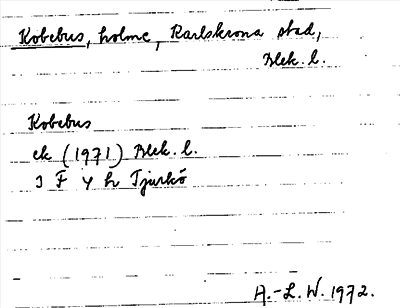 Kobebus, holme, Karlskrona stad,
Blek. l.
Kobebus
ek (1971) Blek. l.
3 F 4 h Tjurkö
A.-L. W. 1972.